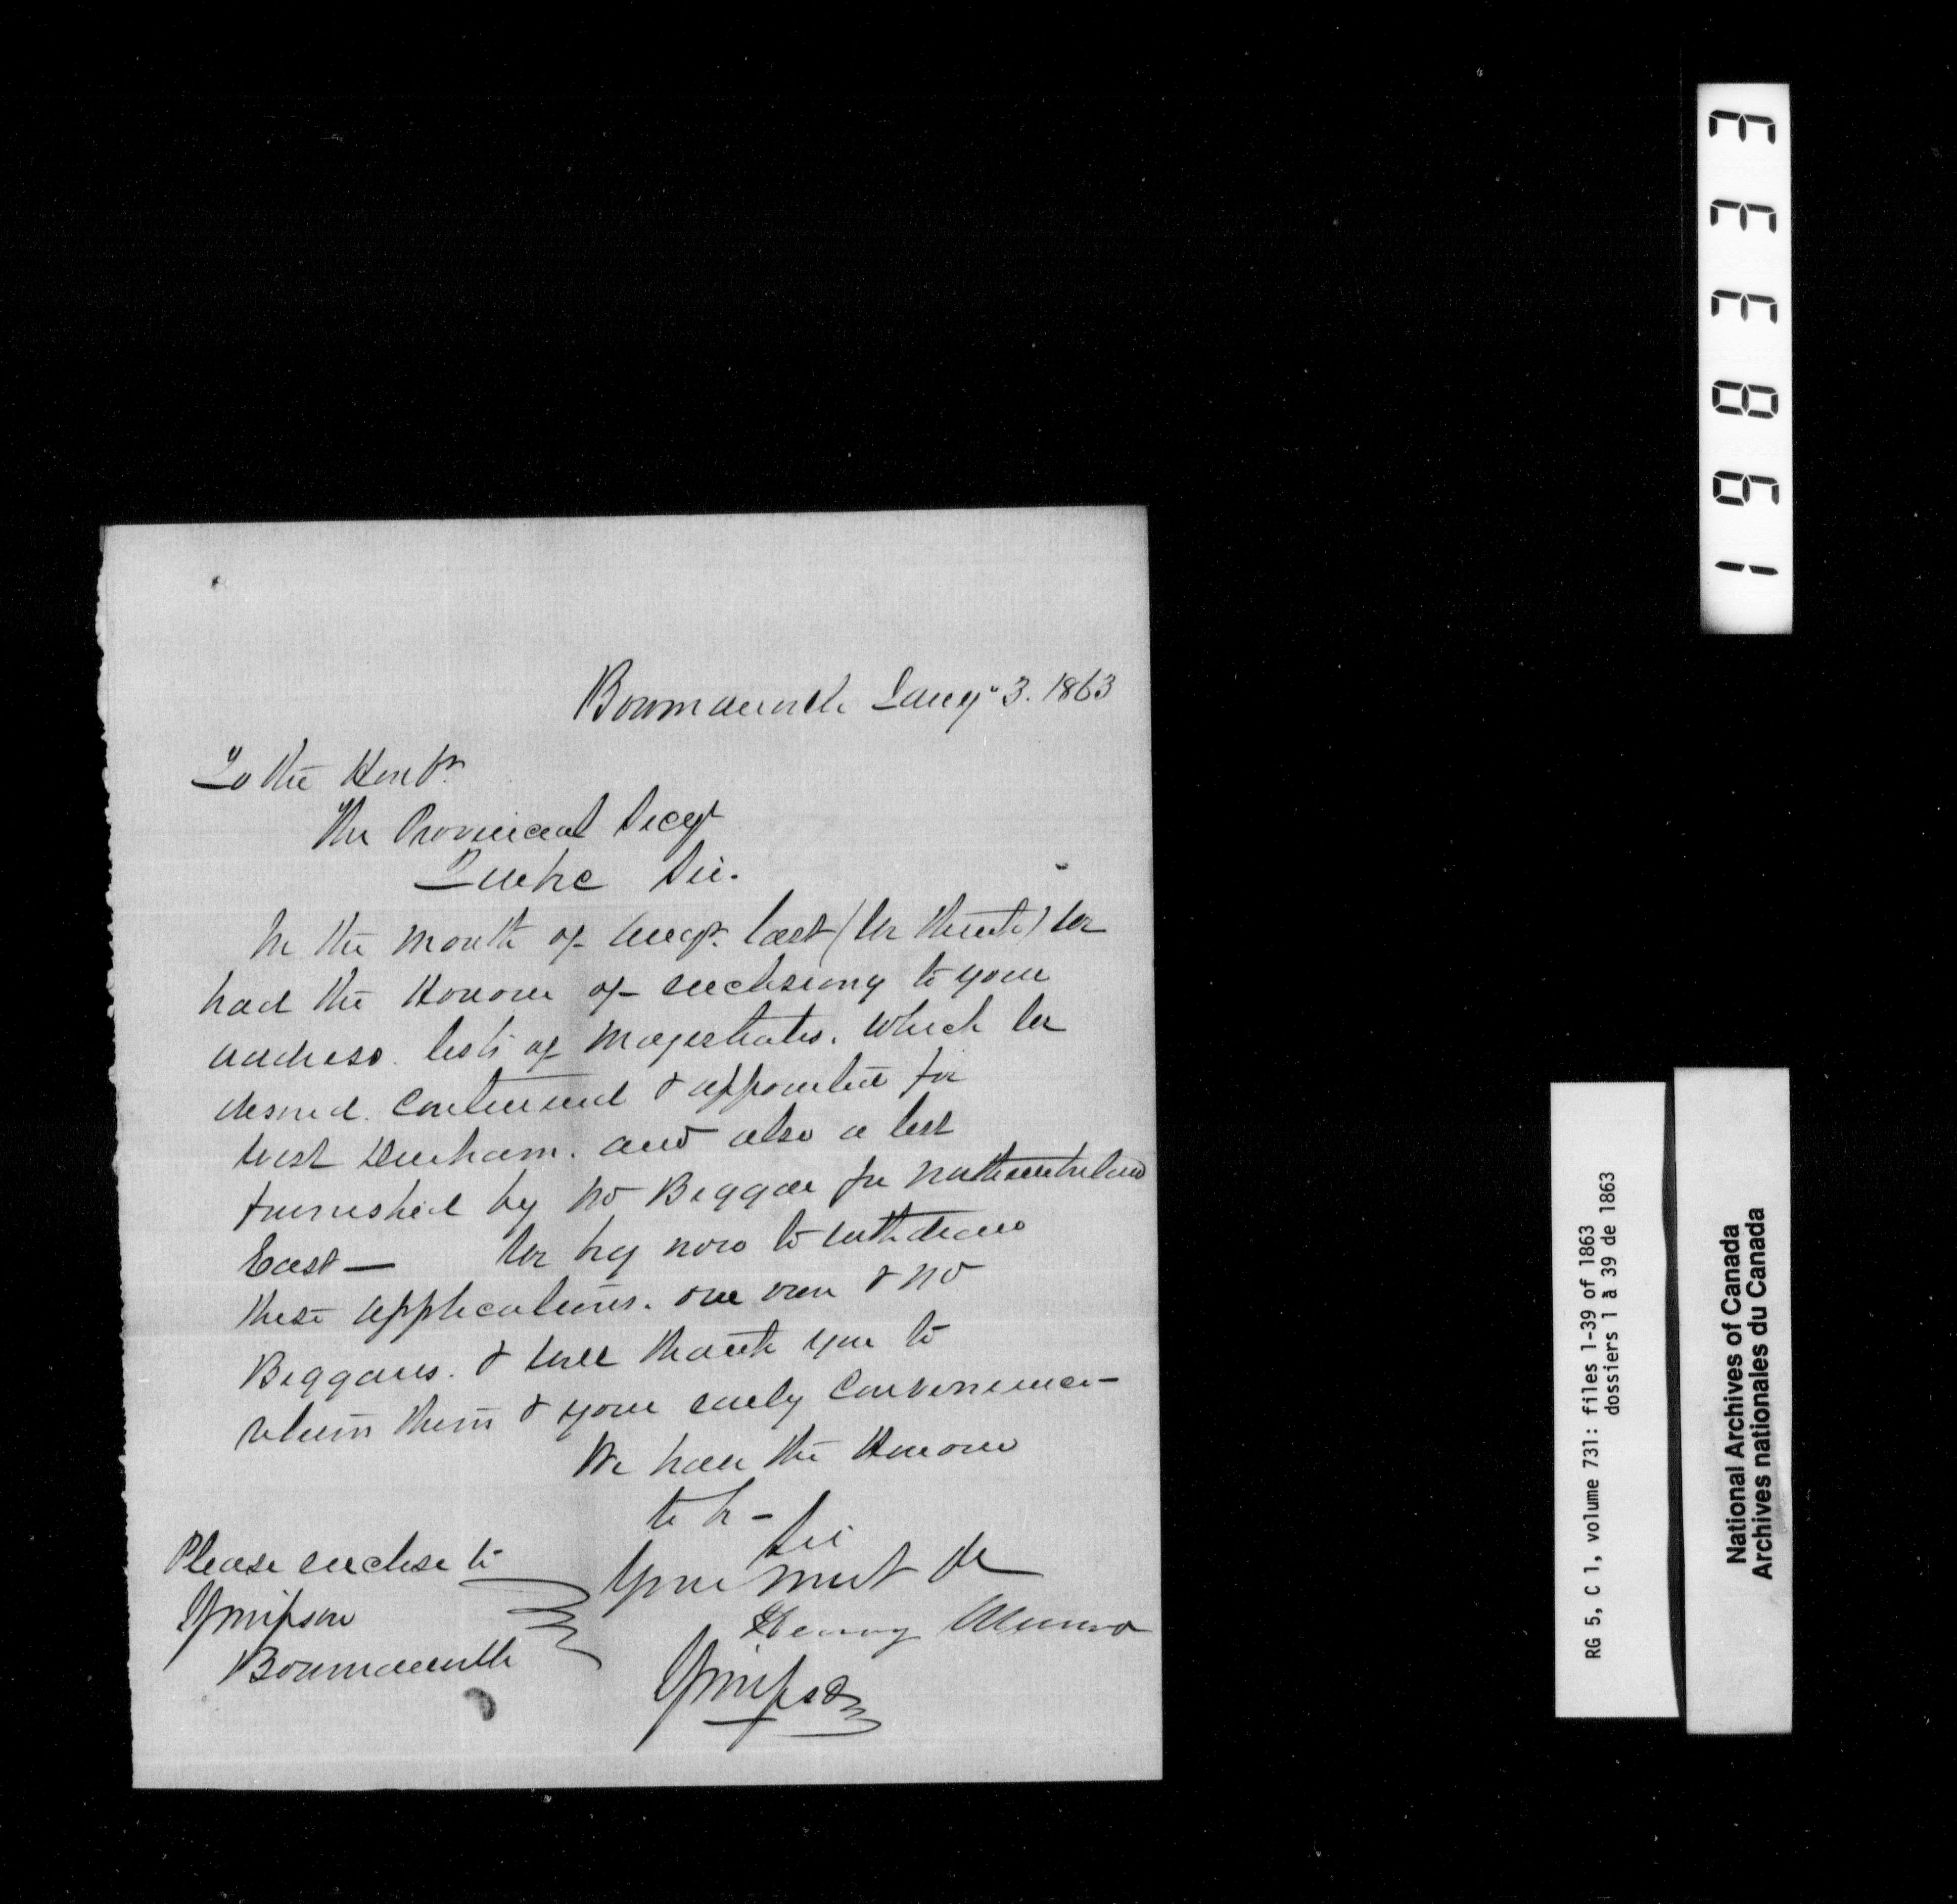 Bowmanville Jany 3. 1863
To the Honble
The Provincial Secy
Quebec Sir.
In the month of Augt. last (we think) we
had the Honour of enclosing to your
address. lists of Magistrates. which we
desired. continued & appointed for
West Durham. and also a list
furnished by Mr Biggar for Northumberland
East — We beg now to withdraw
these applications. our own & Mr
Biggars. & will thank you to
return them & your early convenience —
We have the Honour
to be —
Sir
Your most Se
Henry Munro
JSimpson
Please enclose to
JSimpson
Bowmanville
168333
RG 5, C 1, volume 731: files 1-39 of 1863
dossiers 1 à 39 de 1863
National Archives of Canada
Archives nationales du Canada